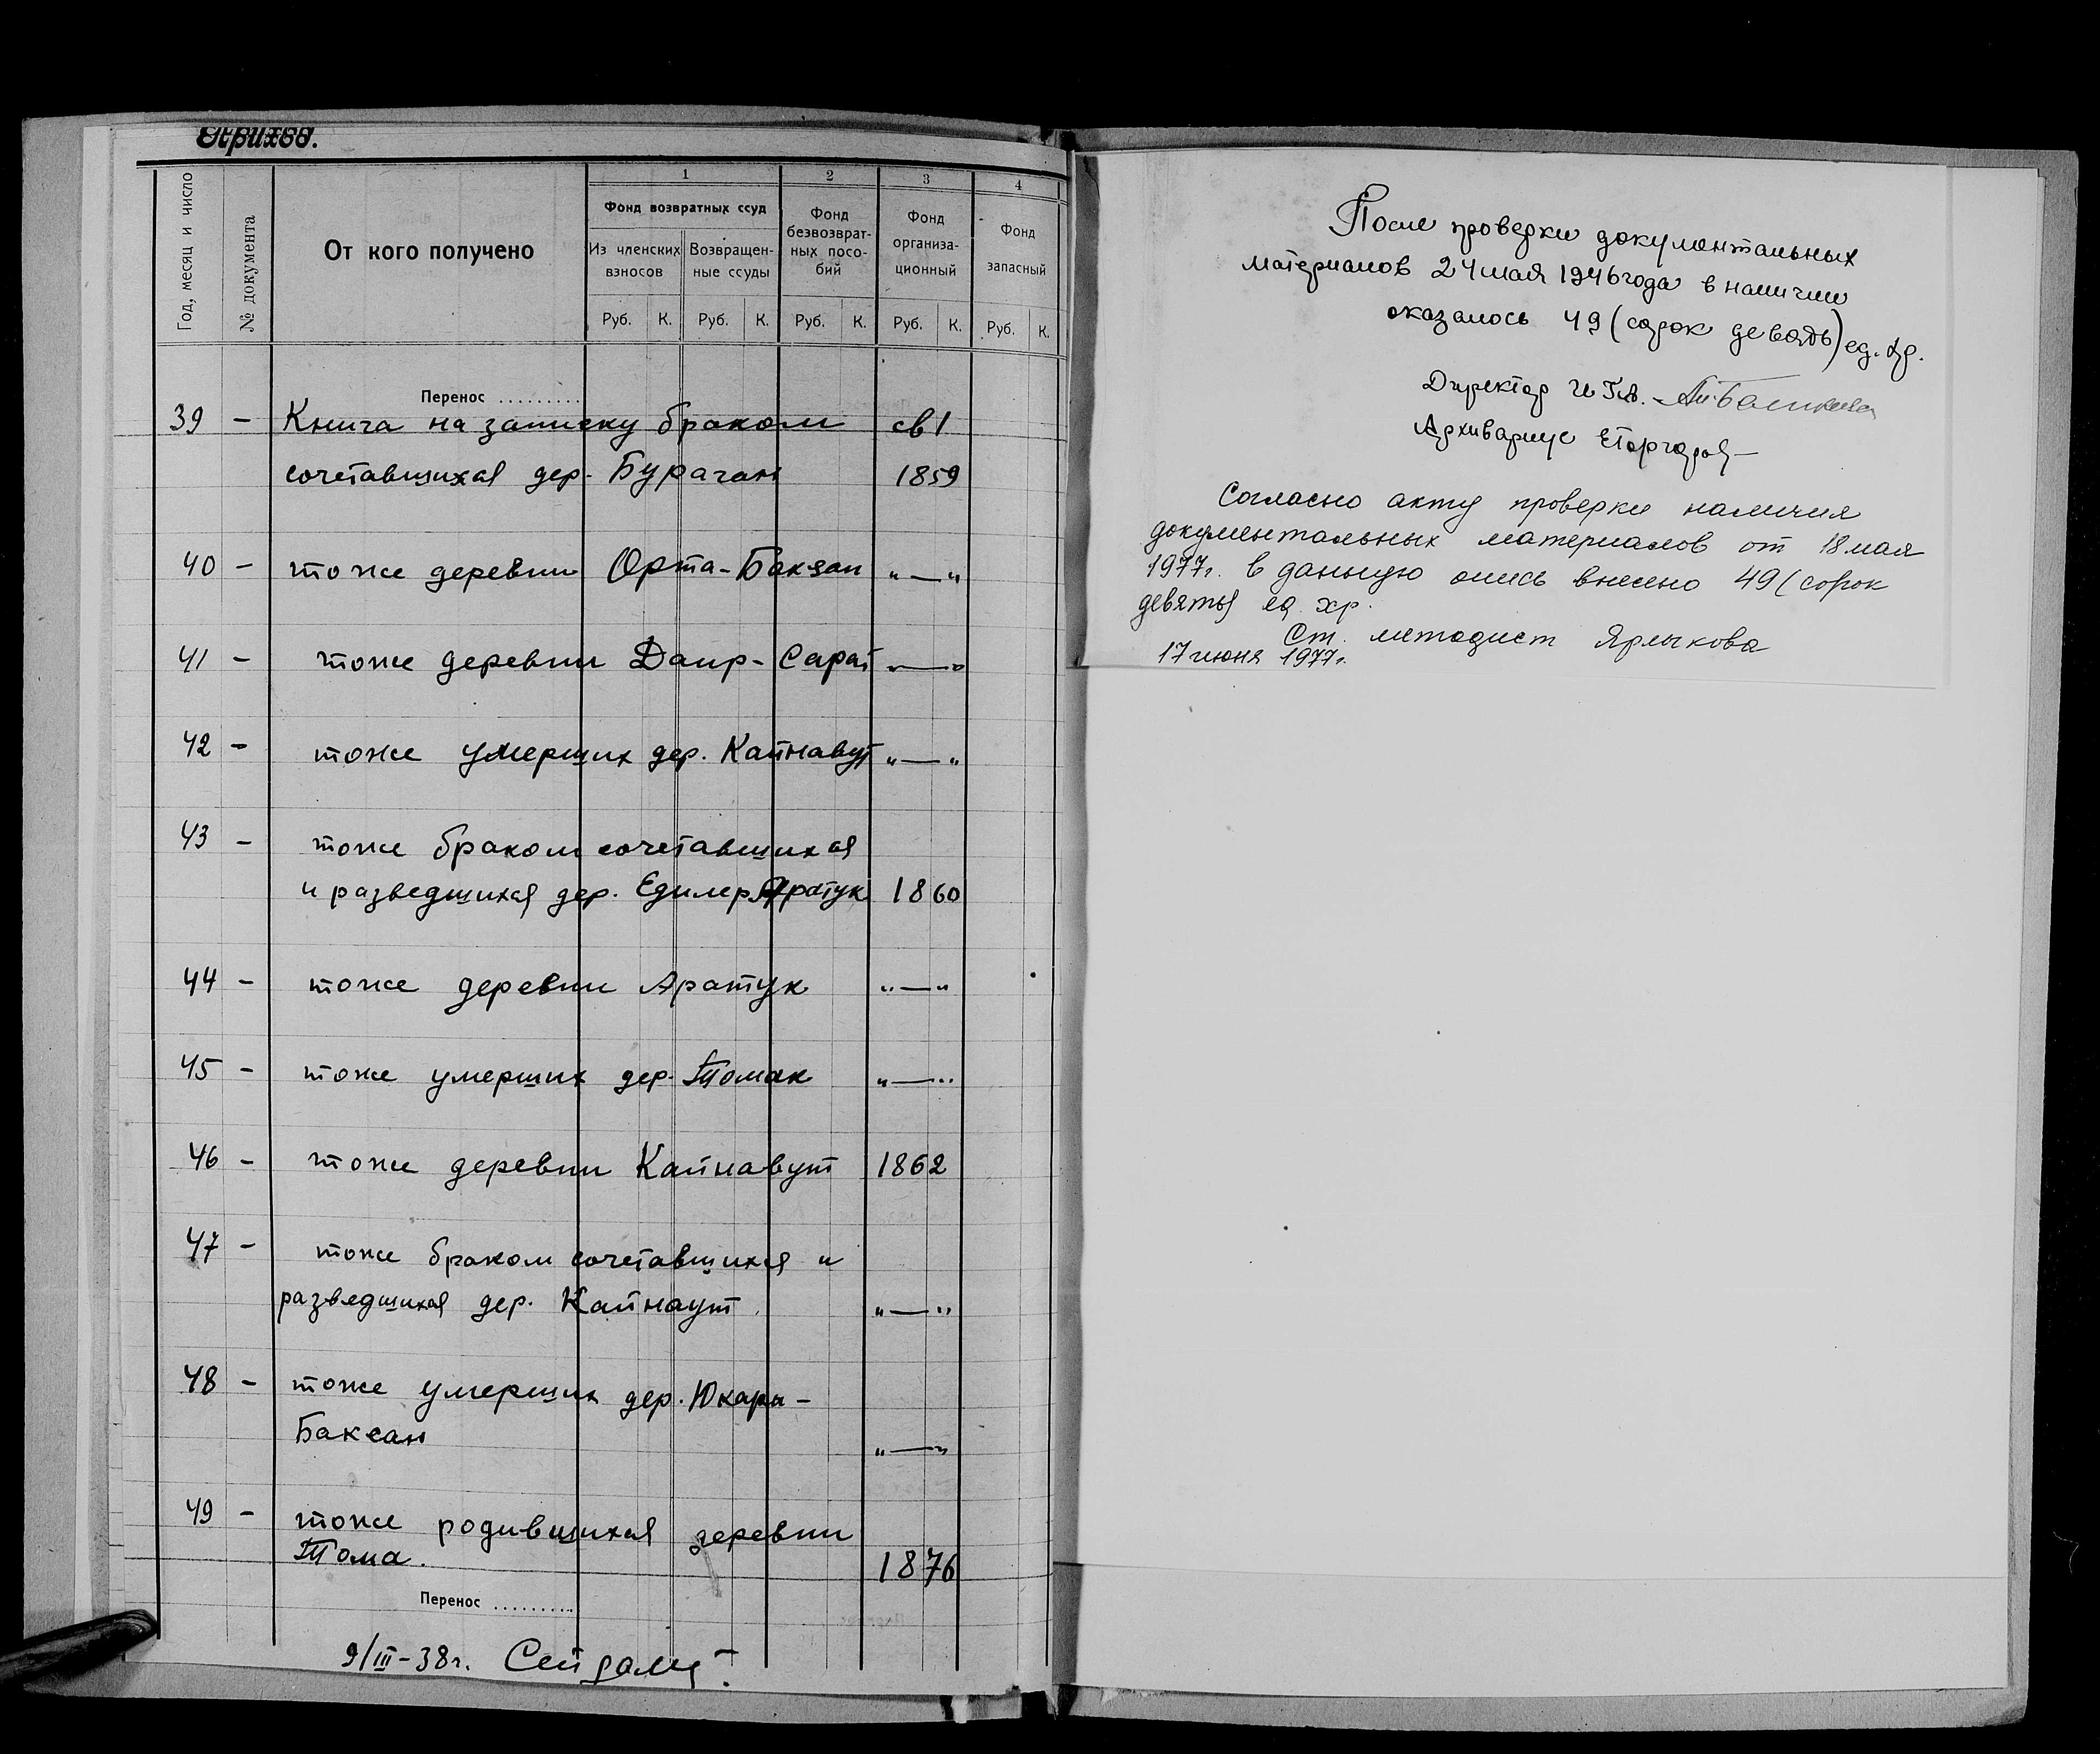 Приход.
Год, месяц и число
№ документа
От кого получено
1
2
3
4
Фонд возвратных ссуд
Из членских взносов
Возвращен-
ные ссуды
Фонд
безвозврат-
ных посо-
бий
Фонд
организа-
ционный
Фонд
запасный
Руб. К. Руб. К. Руб. К. Руб. К. Руб. К.
Перенос ..........
39 – Книга на записку браком св 1
сочетавшихся дер. Бурачан 1859
40 – тоже деревни Орта-Баксан „—“
41 – тоже деревни Даир-Сарай „—“
42 – тоже умерших дер. Кайнавут „—“
43 – тоже браком сочетавшихся
и разведшихся дер. Едилер Аратук 1860
44 – тоже деревни Аратук „—“
45 – тоже умерших дер. Томак „—“
46 – тоже деревни Кайнавут 1862
47 – тоже браком сочетавшихся и
разведшихся дер. Кайнаут „—“
48 – тоже умерших дер. Юкары-
Баксан „—“
49 – тоже родившихся деревни
Тома. 1876
Перенос ..........
9/III-38г.
После проверки документальных
материалов 24 мая 1946 года в наличии
оказалось 49 (сорок девять) ед. хр.
Директор
Архивариус
Согласно акту проверки наличия
документальных материалов от 18 мая
1977г. в данную опись внесено 49 (сорок
девять) ед. хр.
Ст. методист Ярлыкова
17 июня 1977г.